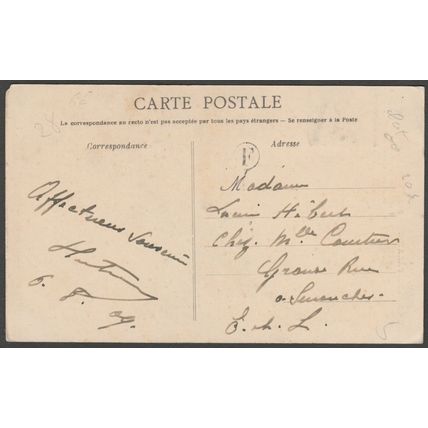 CARTE POSTALE
La correspondance au recto n'est pas acceptée par tous les pays étrangers — Se renseigner à la Poste
Correspondance
Adresse
F
Affectueux Souvenir
6. 8. 09
Madame
Louis Hébert
Chez Mlle Courtier
Grande Rue
à Senonches
E. & L.
28